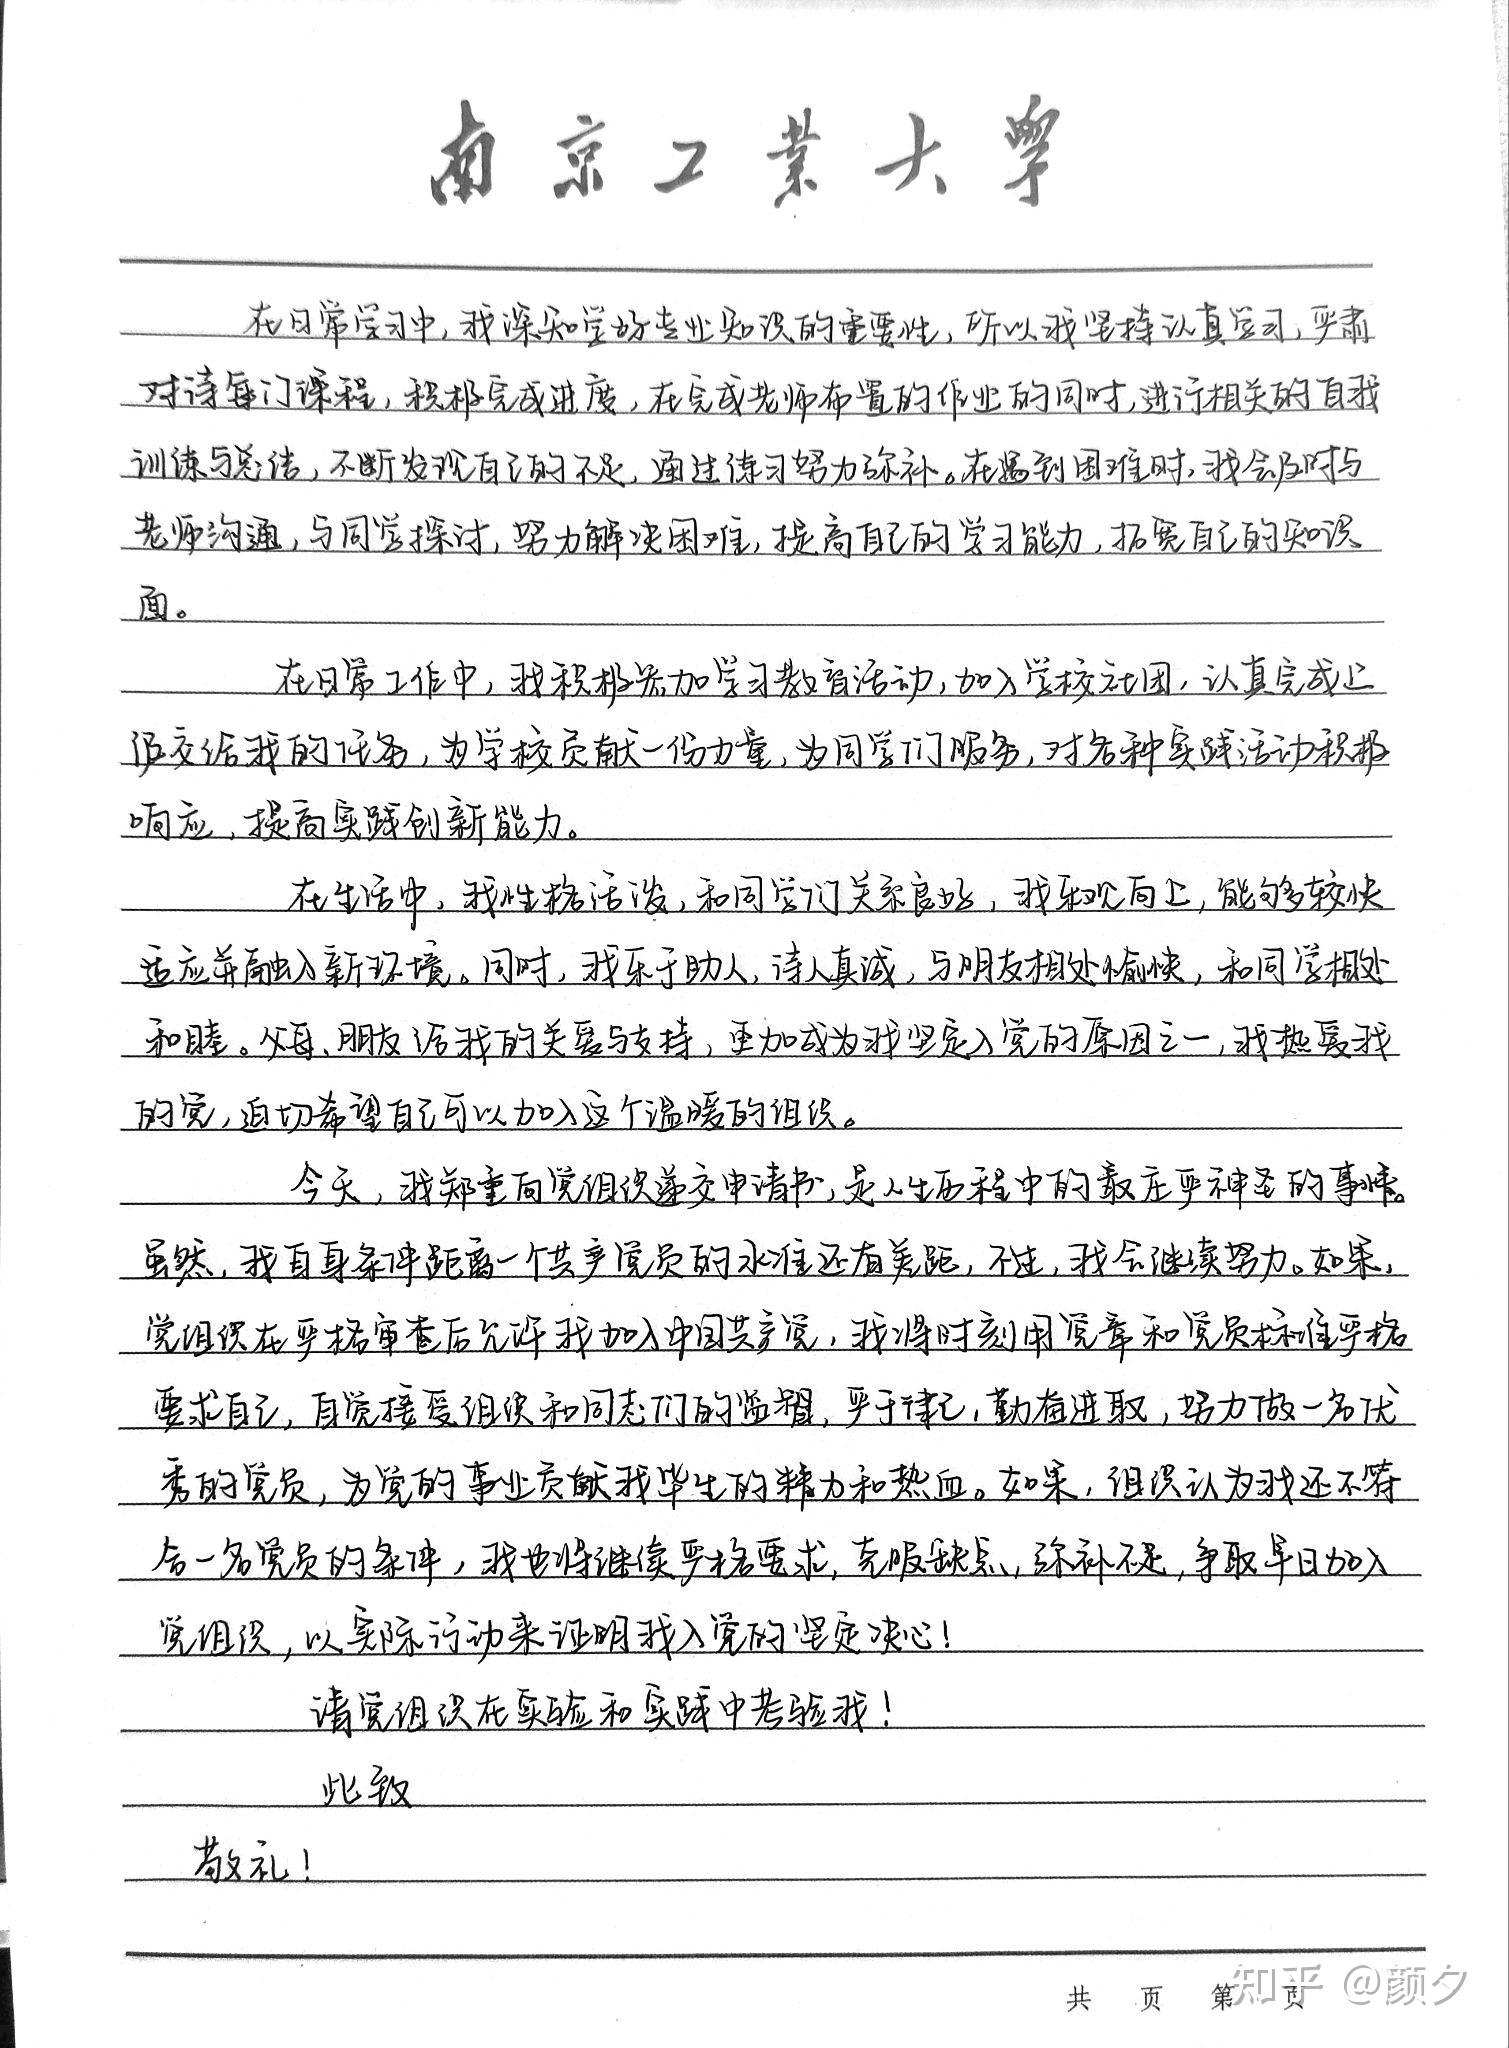 南京工业大学
在日常学习中，我深知学好专业知识的重要性，所以我坚持认真学习，严肃
对待每门课程，积极完成进度，在完成老师布置的作业的同时，进行相关的自我
训练与总结，不断发现自己的不足，通过练习努力弥补。在遇到困难时，我会及时与
老师沟通，与同学探讨，努力解决困难，提高自己的学习能力，拓宽自己的知识
面。
在日常工作中，我积极参加学习教育活动，加入学校社团，认真完成上
级交给我的任务，为学校贡献一份力量，为同学们服务，对各种实践活动积极
响应，提高实践创新能力。
在生活中，我性格活泼，和同学们关系良好，我乐观向上，能够较快
适应并融入新环境。同时，我乐于助人，待人真诚，与朋友相处愉快，和同学相处
和睦。父母、朋友给我的关爱与支持，更加成为我坚定入党的原因之一，我热爱我
的党，迫切希望自己可以加入这个温暖的组织。
今天，我郑重向党组织递交申请书，是人生历程中的最庄严神圣的事情。
虽然，我自身条件距离一个共产党员的水准还有差距，不过，我会继续努力。如果，
党组织在严格审查后允许我加入中国共产党，我将时刻用党章和党员标准严格
要求自己，自觉接受组织和同志们的监督，严于律己，勤奋进取，努力做一名优
秀的党员，为党的事业贡献我毕生的精力和热血。如果，组织认为我还不符
合一名党员的条件，我也将继续严格要求，克服缺点，弥补不足，争取早日加入
党组织，以实际行动来证明我入党的坚定决心！
请党组织在实验和实践中考验我！
此致
敬礼！
共 页 第 页
知乎 @颜夕